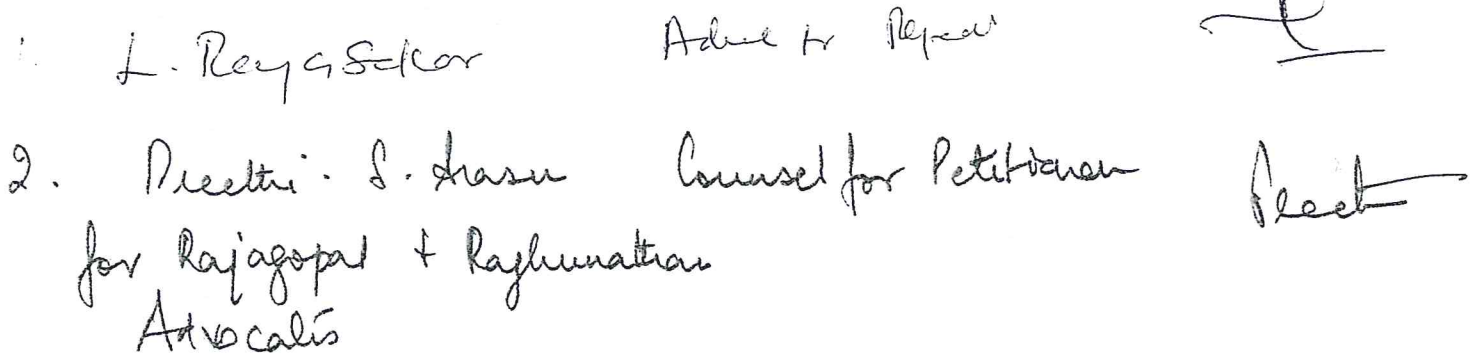 1. L. RayaSekar
2. Preethi. S. Arasu Counsel for Petitioner
for Rajagopal + Raghunathan
Advocates